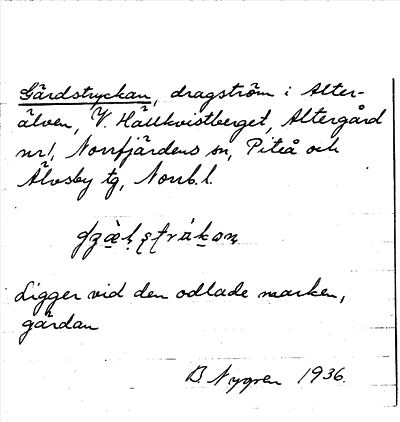 Gärdstryckan, dragström i Alter-
älven, V. Hällkvistberget, Altergård
nr 1, Norrfjärdens sn, Piteå och
Älvsby tg, Norrb. l.
Ligger vid den odlade marken,
gärdan
B Nygren 1936.